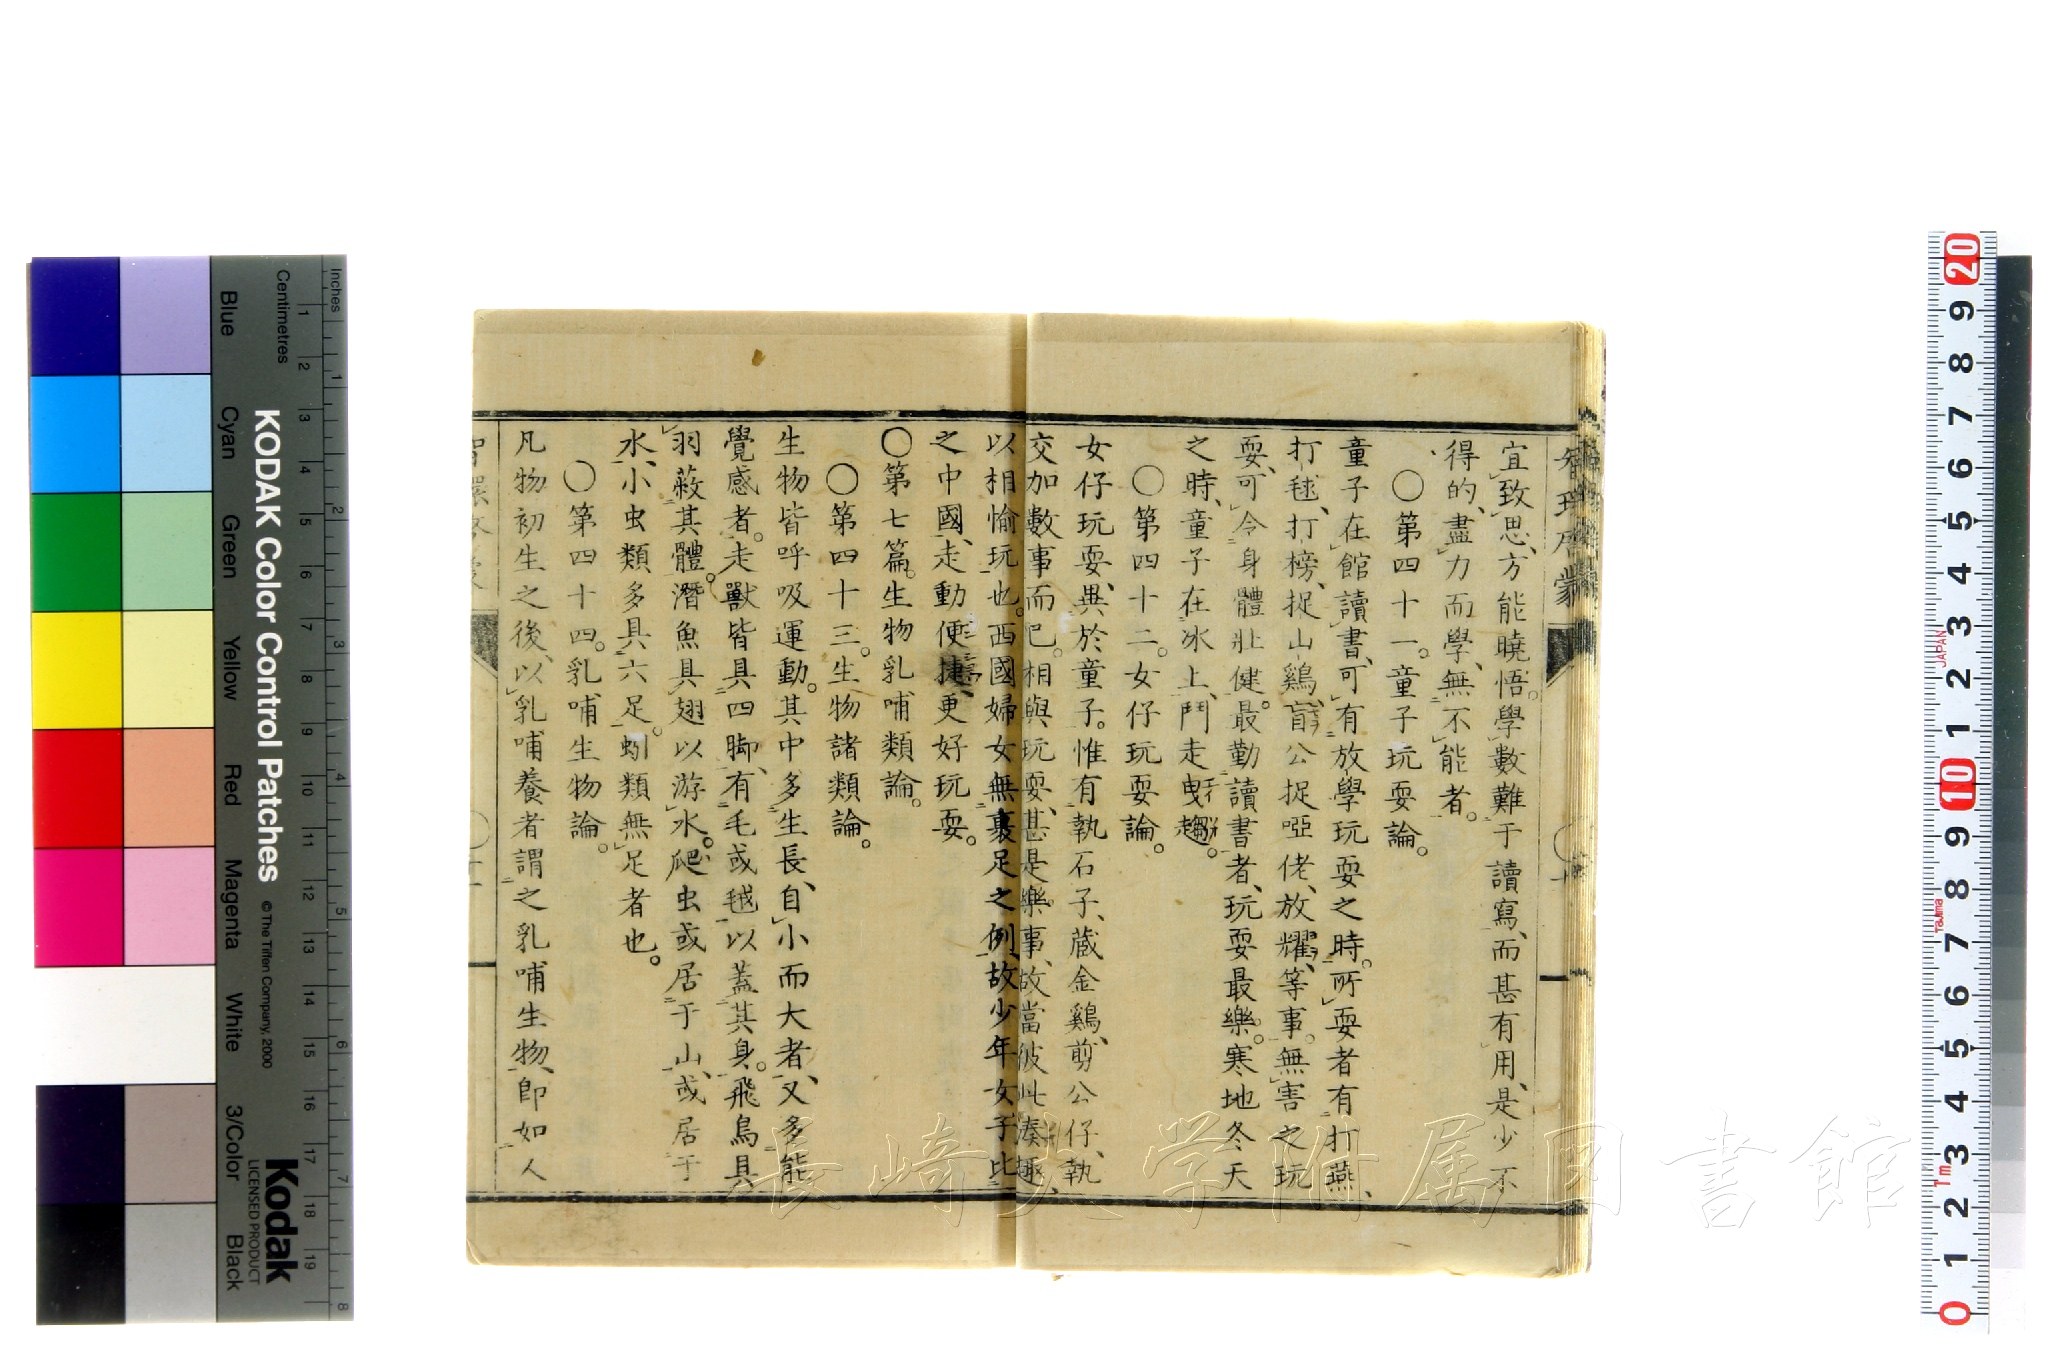 宜致思、方能曉悟。學數難于讀寫、而甚有用、是少不
得的、盡力而學、無不能者。
〇第四十一。童子玩耍論。
童子在館讀書、可有放學玩耍之時。所耍者有打燕、
打毬、打榜、捉山鷄、盲公捉啞佬、放耀、等事。無害之玩
耍、可令身體壯健。最勤讀書者、玩耍最樂。寒地冬天
之時、童子在冰上、鬥走曳趨。
〇第四十二。女仔玩耍論。
女仔玩耍、異於童子。惟有執石子、藏金鷄、剪公仔、執
交加數事而已。相與玩耍、甚是樂事、故當彼此湊趣、
以相愉玩也。西國婦女無裹足之例、故少年女子比
之中國、走動便捷、更好玩耍。
〇第七篇。生物乳哺類論。
〇第四十三。生物諸類論。
生物皆呼吸運動。其中多生長、自小而大者、又多能
覺感者。走獸皆具四脚、有毛或毧以蓋其身。飛鳥具
羽蔽其體。潛魚具翅以游水。爬虫或居于山、或居于
水、小虫類多具六足。蚓類無足者也。
〇第四十四。乳哺生物論。
凡物初生之後、以乳哺養者謂之乳哺生物、即如人
長崎大学附属図書館
KODAK Color Control Patches
© The Tiffen Company, 2000
Kodak
LICENSED PRODUCT
Inches
1 2 3 4 5 6 7 8
Centimetres
1 2 3 4 5 6 7 8 9 10 11 12 13 14 15 16 17 18 19
Blue Cyan Green Yellow Red Magenta White 3/Color Black
20 9 8 7 6 5 4 3 2 1 10 9 8 7 6 5 4 3 2 1 0
JAPAN
Tajima